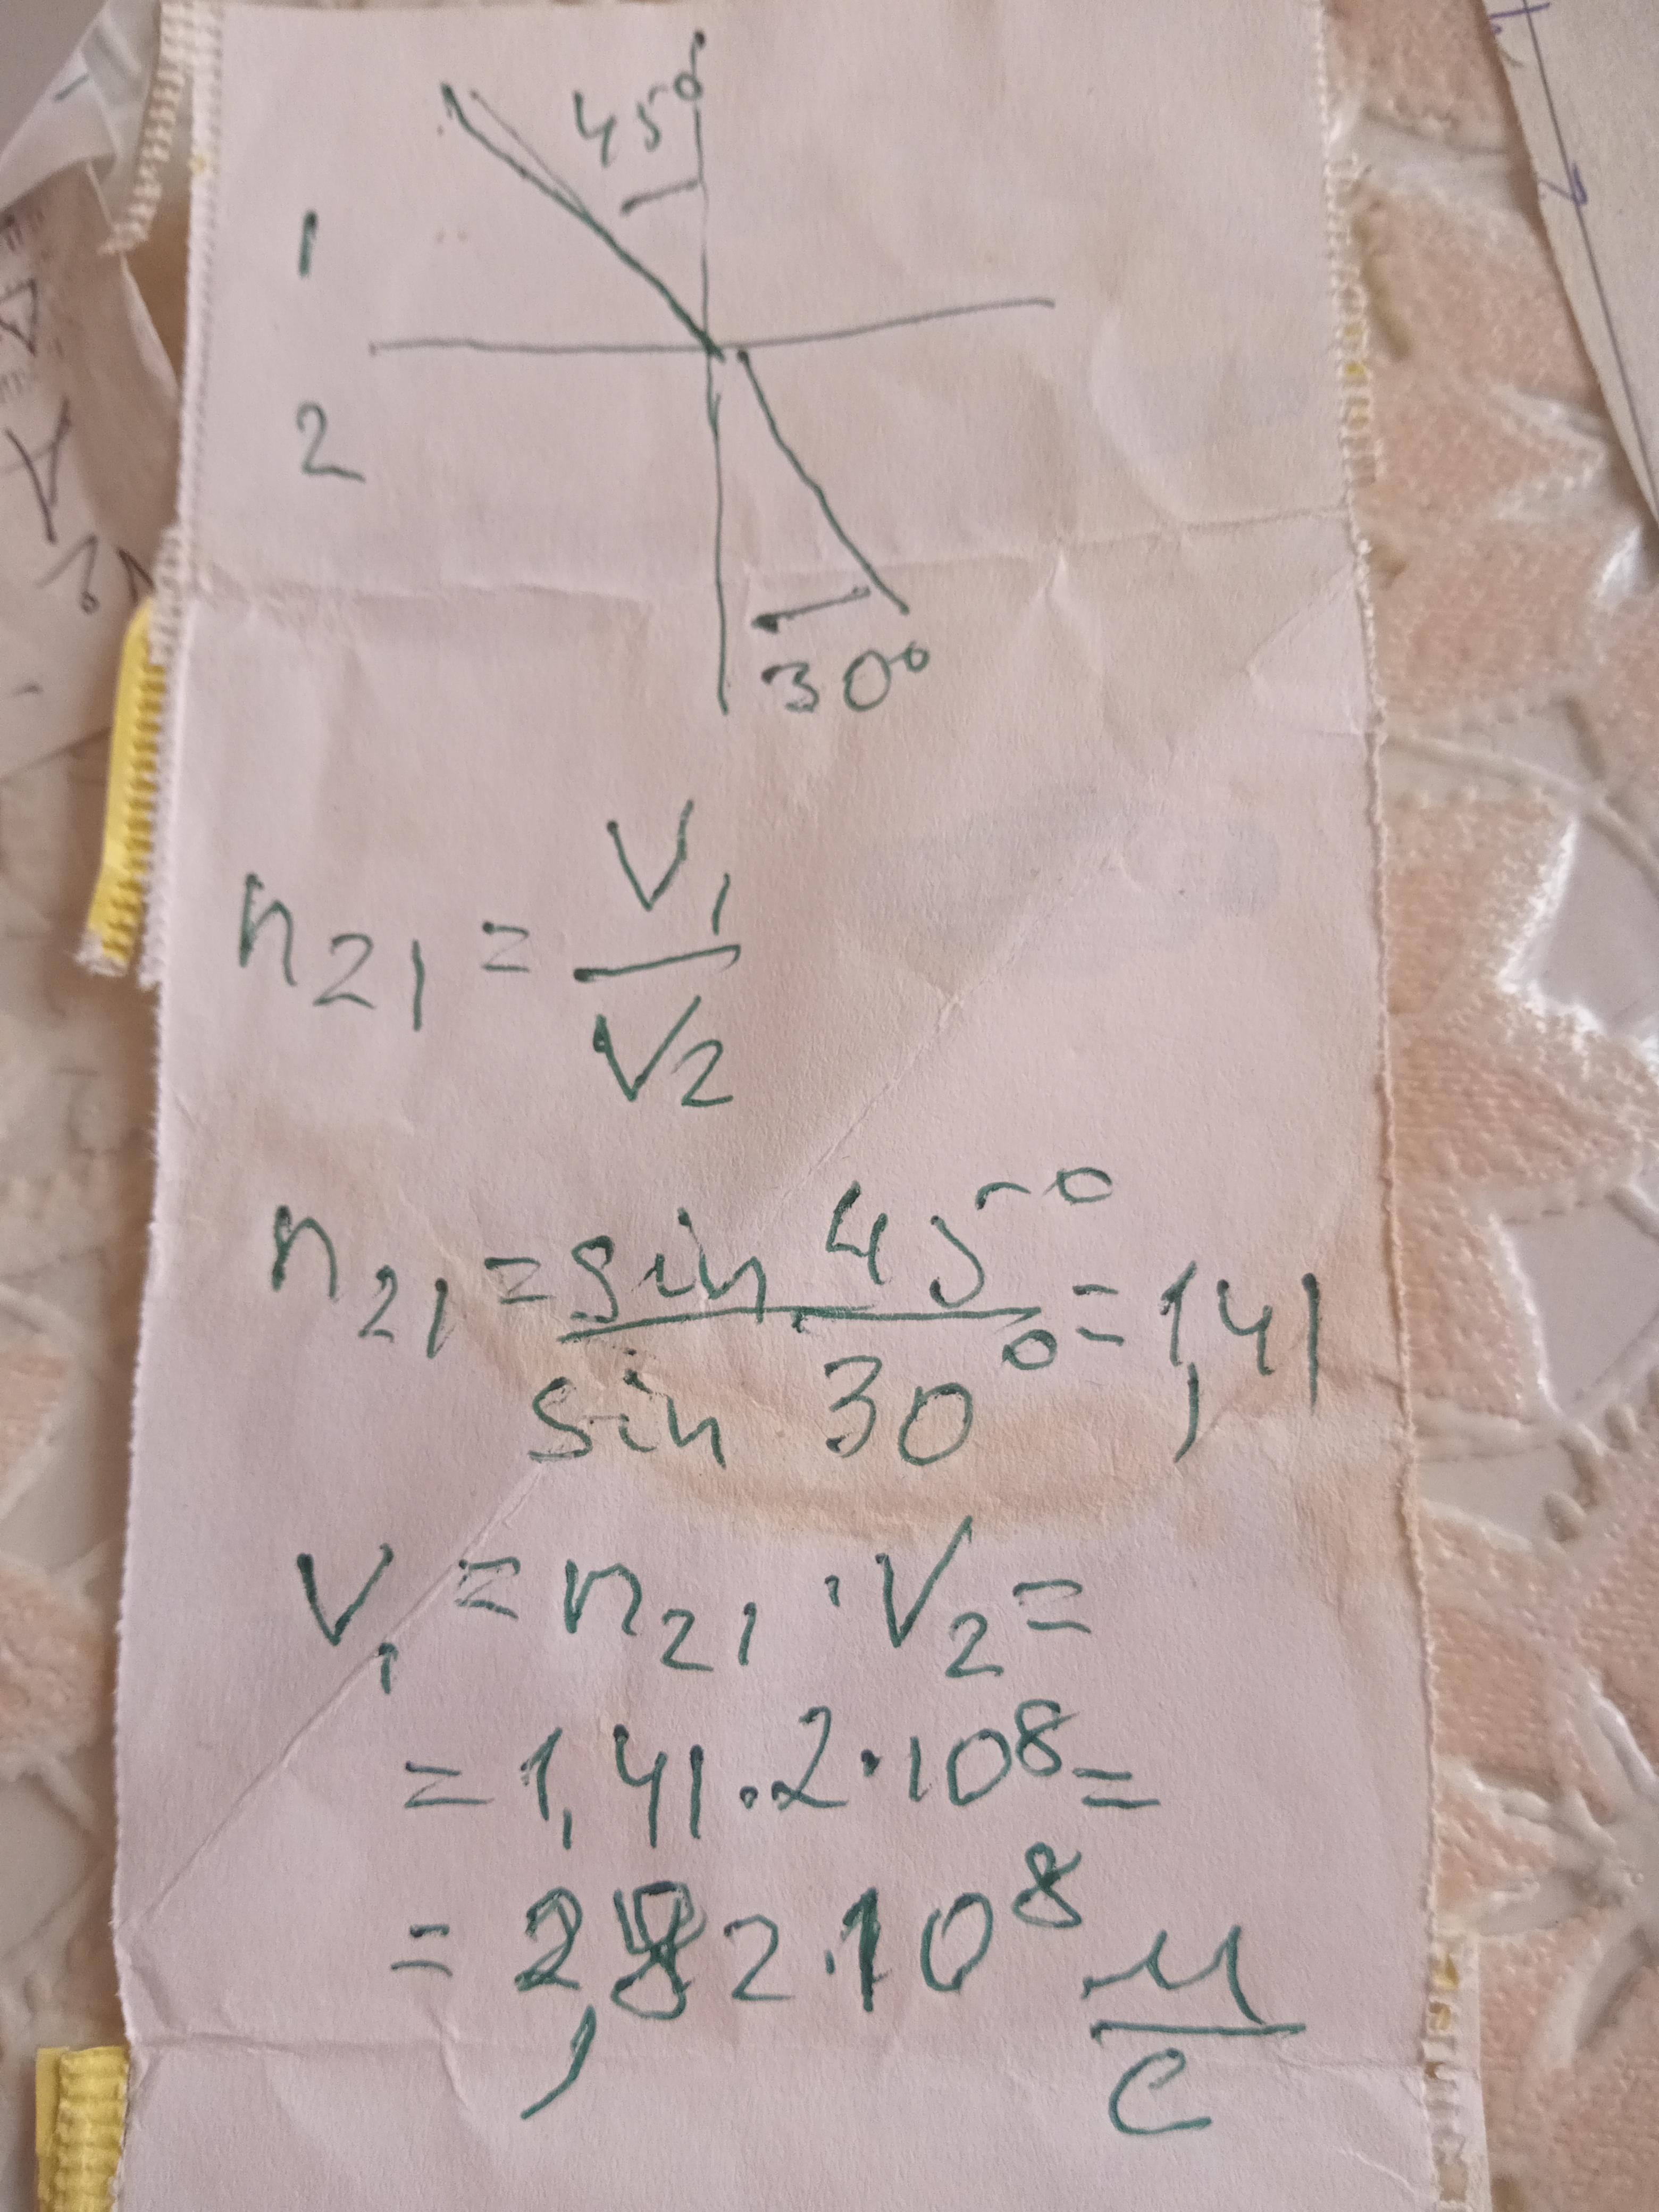 45°
1
2
30°
n₂₁ = V₁ / V₂
n₂₁ = sin 45° / sin 30° = 1,41
V₁ = n₂₁ · V₂ =
= 1,41 · 2 · 10⁸ =
= 2,82 · 10⁸ м/с